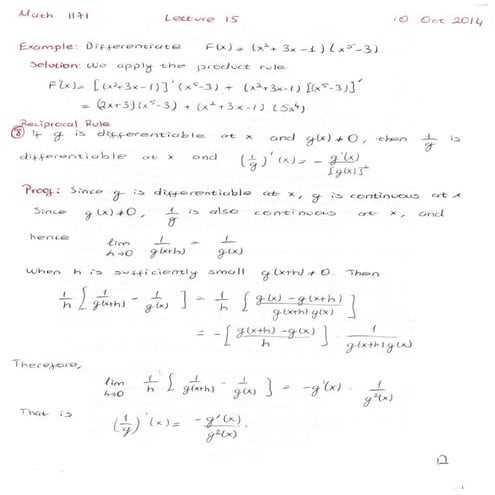 Math 1171 Lecture 15 10 Oct 2014
Example: Differentiate F(x) = (x²+3x-1)(x⁵-3)
Solution: We apply the product rule
F'(x) = [(x²+3x-1)]'(x⁵-3) + (x²+3x-1)[(x⁵-3)]'
= (2x+3)(x⁵-3) + (x²+3x-1)(5x⁴)
Reciprocal Rule
⑧ If g is differentiable at x and g(x)≠0, then 1/g is
differentiable at x and (1/g)'(x) = - g'(x)/[g(x)]²
Proof: Since g is differentiable at x, g is continuous at x
Since g(x)≠0, 1/g is also continuous at x, and
hence lim h→0 1/g(x+h) = 1/g(x)
When h is sufficiently small g(x+h)≠0. Then
1/h [1/g(x+h) - 1/g(x)] = 1/h [(g(x)-g(x+h))/(g(x+h)g(x))]
= -[(g(x+h)-g(x))/h] · 1/(g(x+h)g(x))
Therefore,
lim h→0 1/h [1/g(x+h) - 1/g(x)] = -g'(x) · 1/g²(x)
That is (1/g)'(x) = -g'(x)/g²(x).
□